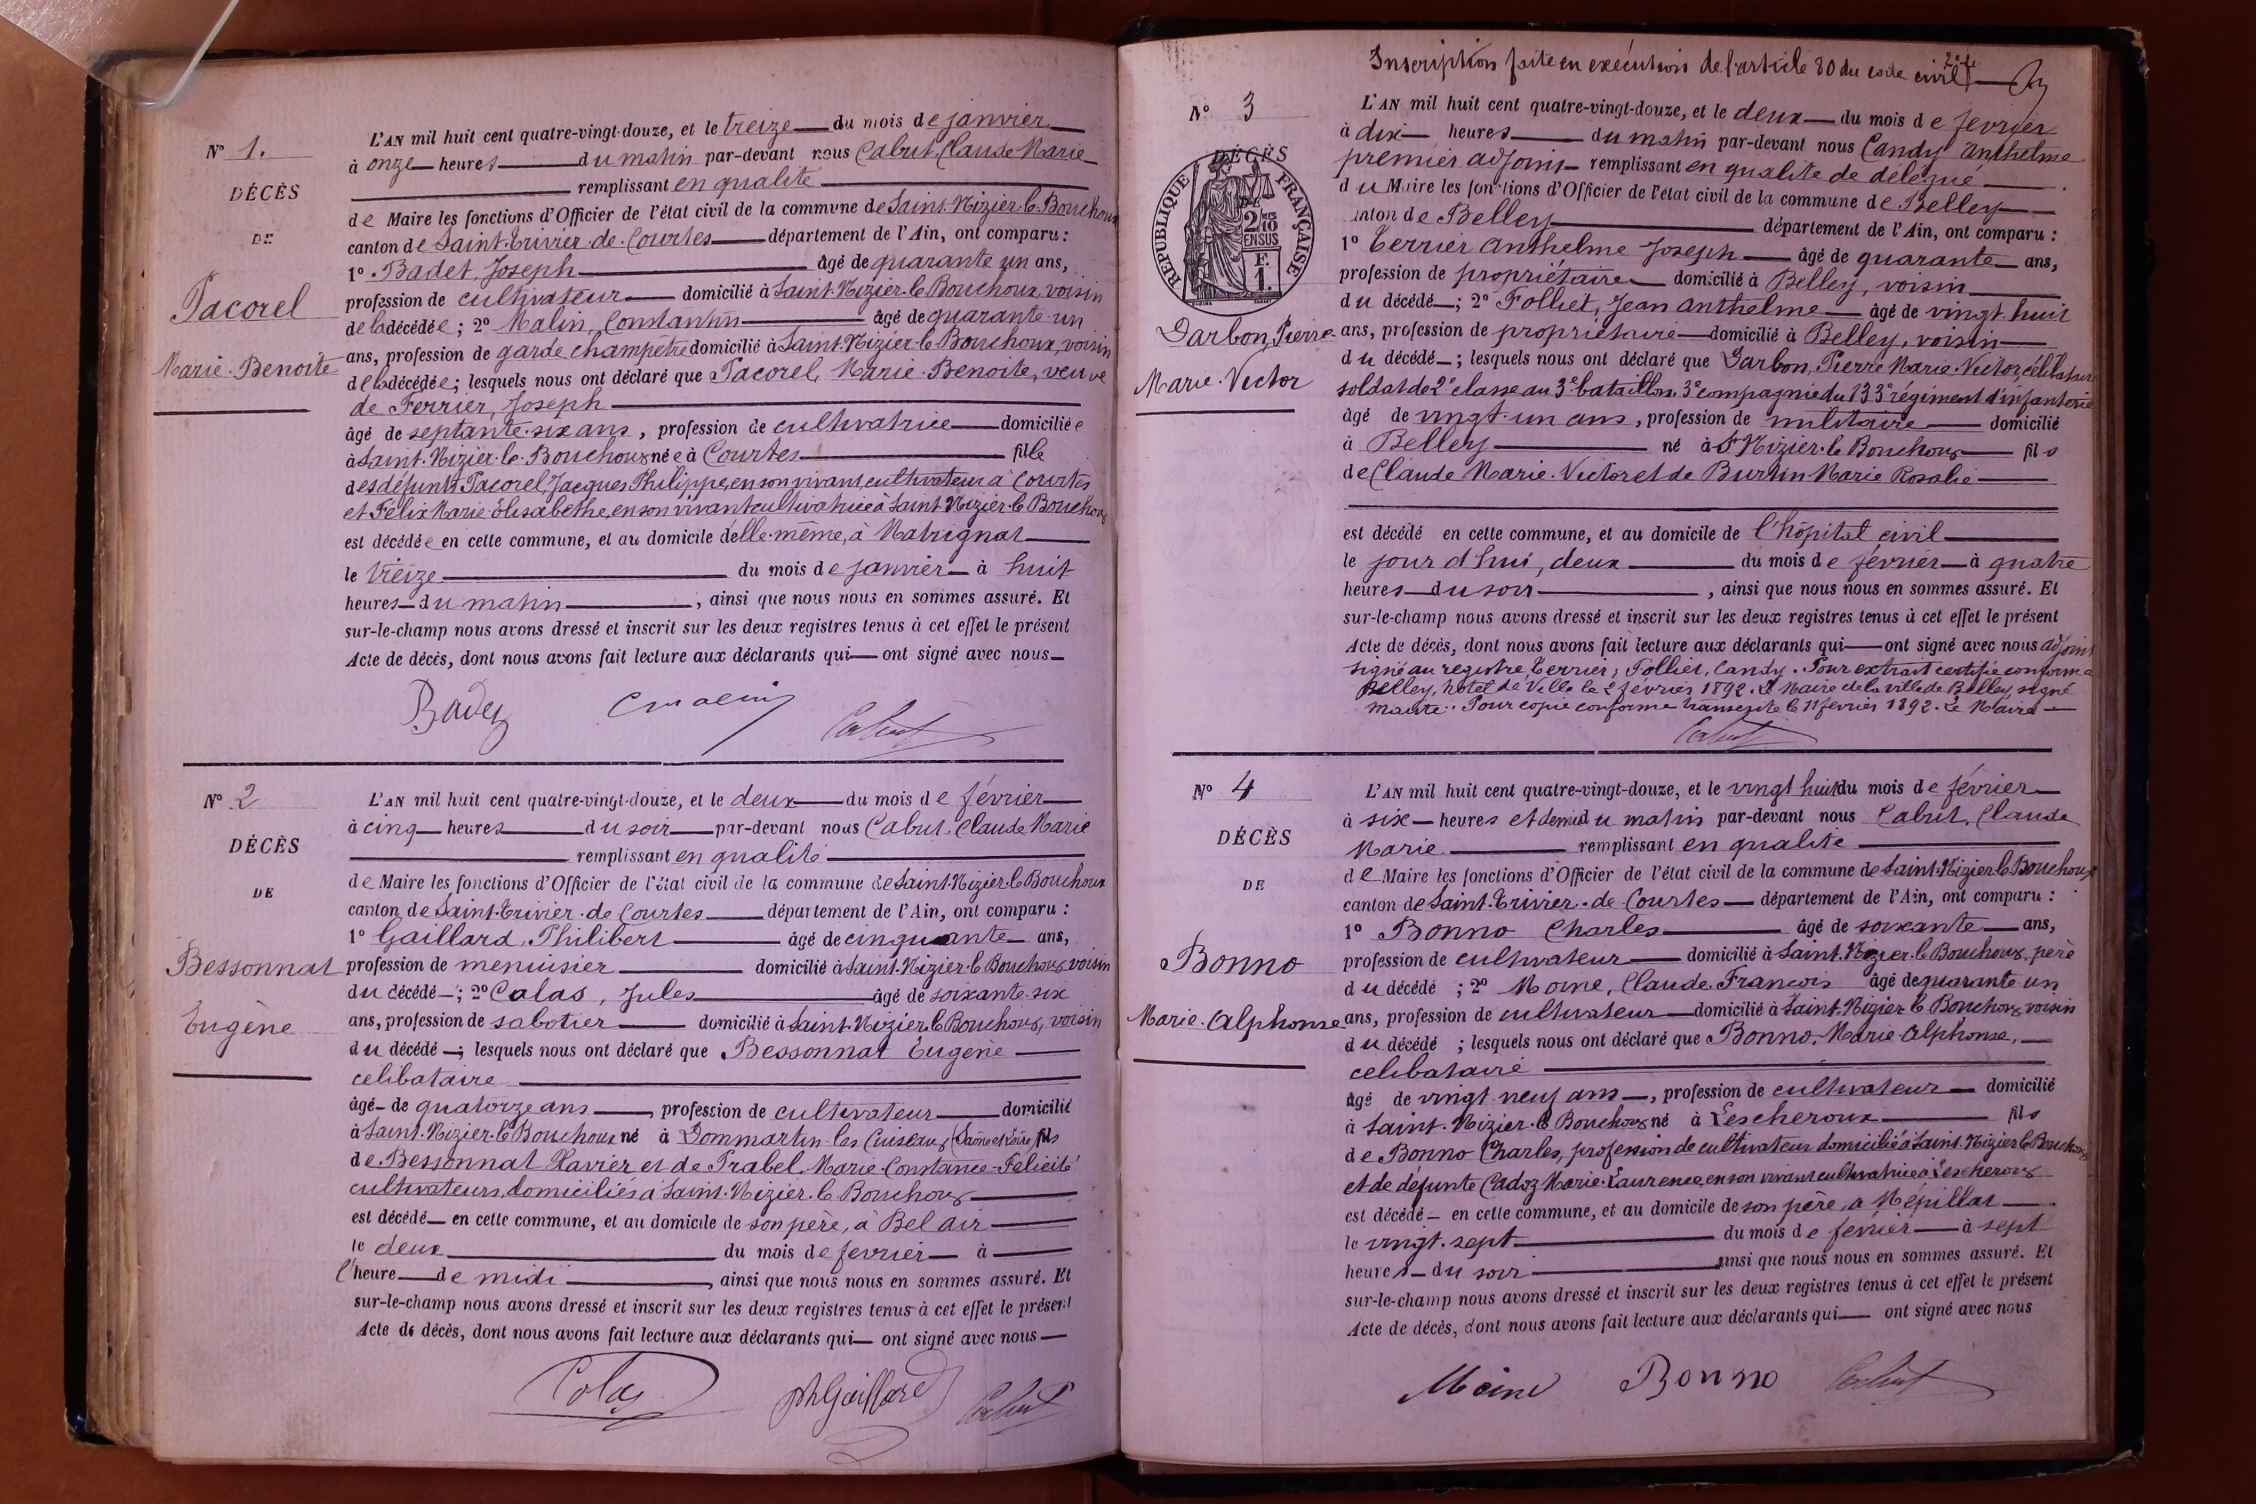 N° 1.
DÉCÈS
DE
Pacorel
Marie-Benoite
L'AN mil huit cent quatre-vingt-douze, et le treize du mois de janvier
à onze heures du matin par-devant nous Cabut, Claude Marie
remplissant en qualité
de Maire les fonctions d'Officier de l'état civil de la commune de Saint-Nizier-le-Bouchoux
canton de Saint-Trivier-de-Courtes département de l'Ain, ont comparu :
1° Badet, Joseph âgé de quarante un ans,
profession de cultivateur domicilié à Saint-Nizier-le-Bouchoux, voisin
de la décédée ; 2° Malin, Constantin âgé de quarante-un
ans, profession de garde champetre domicilié à Saint-Nizier-le-Bouchoux, voisin
de la décédée ; lesquels nous ont déclaré que Pacorel, Marie-Benoite, veuve
de Ferrier, Joseph
âgé de septante-six ans, profession de cultivatrice domiciliée
à Saint-Nizier-le-Bouchoux née à Courtes fille
des défunts Pacorel, Jacques Philippe, en son vivant cultivateur à Courtes
et Félix Marie-Elisabethe, en son vivant cultivatrice à Saint-Nizier-le-Bouchoux
est décédée en cette commune, et au domicile d'elle-même, à Matrignat
le treize du mois de janvier à huit
heures du matin, ainsi que nous nous en sommes assuré. Et
sur-le-champ nous avons dressé et inscrit sur les deux registres tenus à cet effet le présent
Acte de décès, dont nous avons fait lecture aux déclarants qui ont signé avec nous
Badet Cmalin Cabut
N° 2
DÉCÈS
DE
Bessonnat
Eugène
L'AN mil huit cent quatre-vingt-douze, et le deux du mois de février
à cinq heures du soir par-devant nous Cabut, Claude Marie
remplissant en qualité
de Maire les fonctions d'Officier de l'état civil de la commune de Saint-Nizier-le-Bouchoux
canton de Saint-Trivier-de-Courtes département de l'Ain, ont comparu :
1° Gaillard, Philibert âgé de cinquante ans,
profession de menuisier domicilié à Saint-Nizier-le-Bouchoux, voisin
du décédé ; 2° Colas, Jules âgé de soixante-six
ans, profession de sabotier domicilié à Saint-Nizier-le-Bouchoux, voisin
du décédé ; lesquels nous ont déclaré que Bessonnat Eugène
celibataire
âgé de quatorze ans, profession de cultivateur domicilié
à Saint-Nizier-le-Bouchoux né à Dommartin-les-Cuiseaux (Saône et Loire) fils
de Bessonnat Xavier et de Prabel, Marie-Constance-Felicité
cultivateurs, domiciliés à Saint-Nizier-le-Bouchoux
est décédé en cette commune, et au domicile de son père, à Bel air
le deux du mois de fevrier à
l'heure de midi, ainsi que nous nous en sommes assuré. Et
sur-le-champ nous avons dressé et inscrit sur les deux registres tenus à cet effet le présent
Acte de décès, dont nous avons fait lecture aux déclarants qui ont signé avec nous
Colas phGaillard Cabut
Inscription faite en exécution de l'article 80 du code civil
N° 3
DÉCÈS
RÉPUBLIQUE FRANÇAISE
2/10 EN SUS
F.
1.
Darbon, Pierre
Marie-Victor
L'AN mil huit cent quatre-vingt-douze, et le deux du mois de fevrier
à dix heures du matin par-devant nous Candy Anthelme
premier adjoint remplissant en qualité de délégué
du Maire les fonctions d'Officier de l'état civil de la commune de Belley
anton de Belley département de l'Ain, ont comparu :
1° Terrier Anthelme Joseph âgé de quarante ans,
profession de propriétaire domicilié à Belley, voisin
du décédé ; 2° Folliet, Jean Anthelme âgé de vingt-huit
ans, profession de propriétaire domicilié à Belley, voisin
du décédé ; lesquels nous ont déclaré que Darbon, Pierre Marie-Victor, célibataire
soldat de 2e classe au 3e bataillon 3e compagnie du 133e régiment d'infanterie
âgé de vingt-un ans, profession de militaire domicilié
à Belley né à St Nizier-le-Bouchoux fils
de Claude Marie-Victor et de Burtin Marie Rosalie
est décédé en cette commune, et au domicile de l'hôpital civil
le jour d'hui, deux du mois de février à quatre
heures du soir, ainsi que nous nous en sommes assuré. Et
sur-le-champ nous avons dressé et inscrit sur les deux registres tenus à cet effet le présent
Acte de décès, dont nous avons fait lecture aux déclarants qui ont signé avec nous adjoint
signé au registre, Terrier, Folliet, Candy. Pour extrait certifié conforme
Belley, hôtel de Ville le 2 février 1892. Le Maire de la ville de Belley, signé
. Pour copie conforme transcrite le 11 février 1892. Le Maire
Cabut
N° 4
DÉCÈS
DE
Bonno
Marie-Alphonse
L'AN mil huit cent quatre-vingt-douze, et le vingt huit du mois de février
à six heures et demi du matin par-devant nous Cabut, Claude
Marie remplissant en qualité
de Maire les fonctions d'Officier de l'état civil de la commune de Saint-Nizier-le-Bouchoux
canton de Saint-Trivier-de-Courtes département de l'Ain, ont comparu :
1° Bonno Charles âgé de soixante ans,
profession de cultivateur domicilié à Saint-Nizier-le-Bouchoux, père
du décédé ; 2° Moine, Claude-Francois âgé de quarante un
ans, profession de cultivateur domicilié à Saint-Nizier-le-Bouchoux voisin
du décédé ; lesquels nous ont déclaré que Bonno, Marie-Alphonse,
celibataire
âgé de vingt neuf ans, profession de cultivateur domicilié
à Saint-Nizier-le-Bouchoux né à Lescheroux fils
de Bonno Charles, profession de cultivateur domicilié à Saint-Nizier-le-Bouchoux
et de défunte Cadoz Marie-Laurence, en son vivant cultivatrice à Lescheroux
est décédé en cette commune, et au domicile de son père, à Mépillat
le vingt-sept du mois de fevrier à sept
heures du soir ainsi que nous nous en sommes assuré. Et
sur-le-champ nous avons dressé et inscrit sur les deux registres tenus à cet effet le présent
Acte de décès, dont nous avons fait lecture aux déclarants qui ont signé avec nous
Moine Bonno Cabut